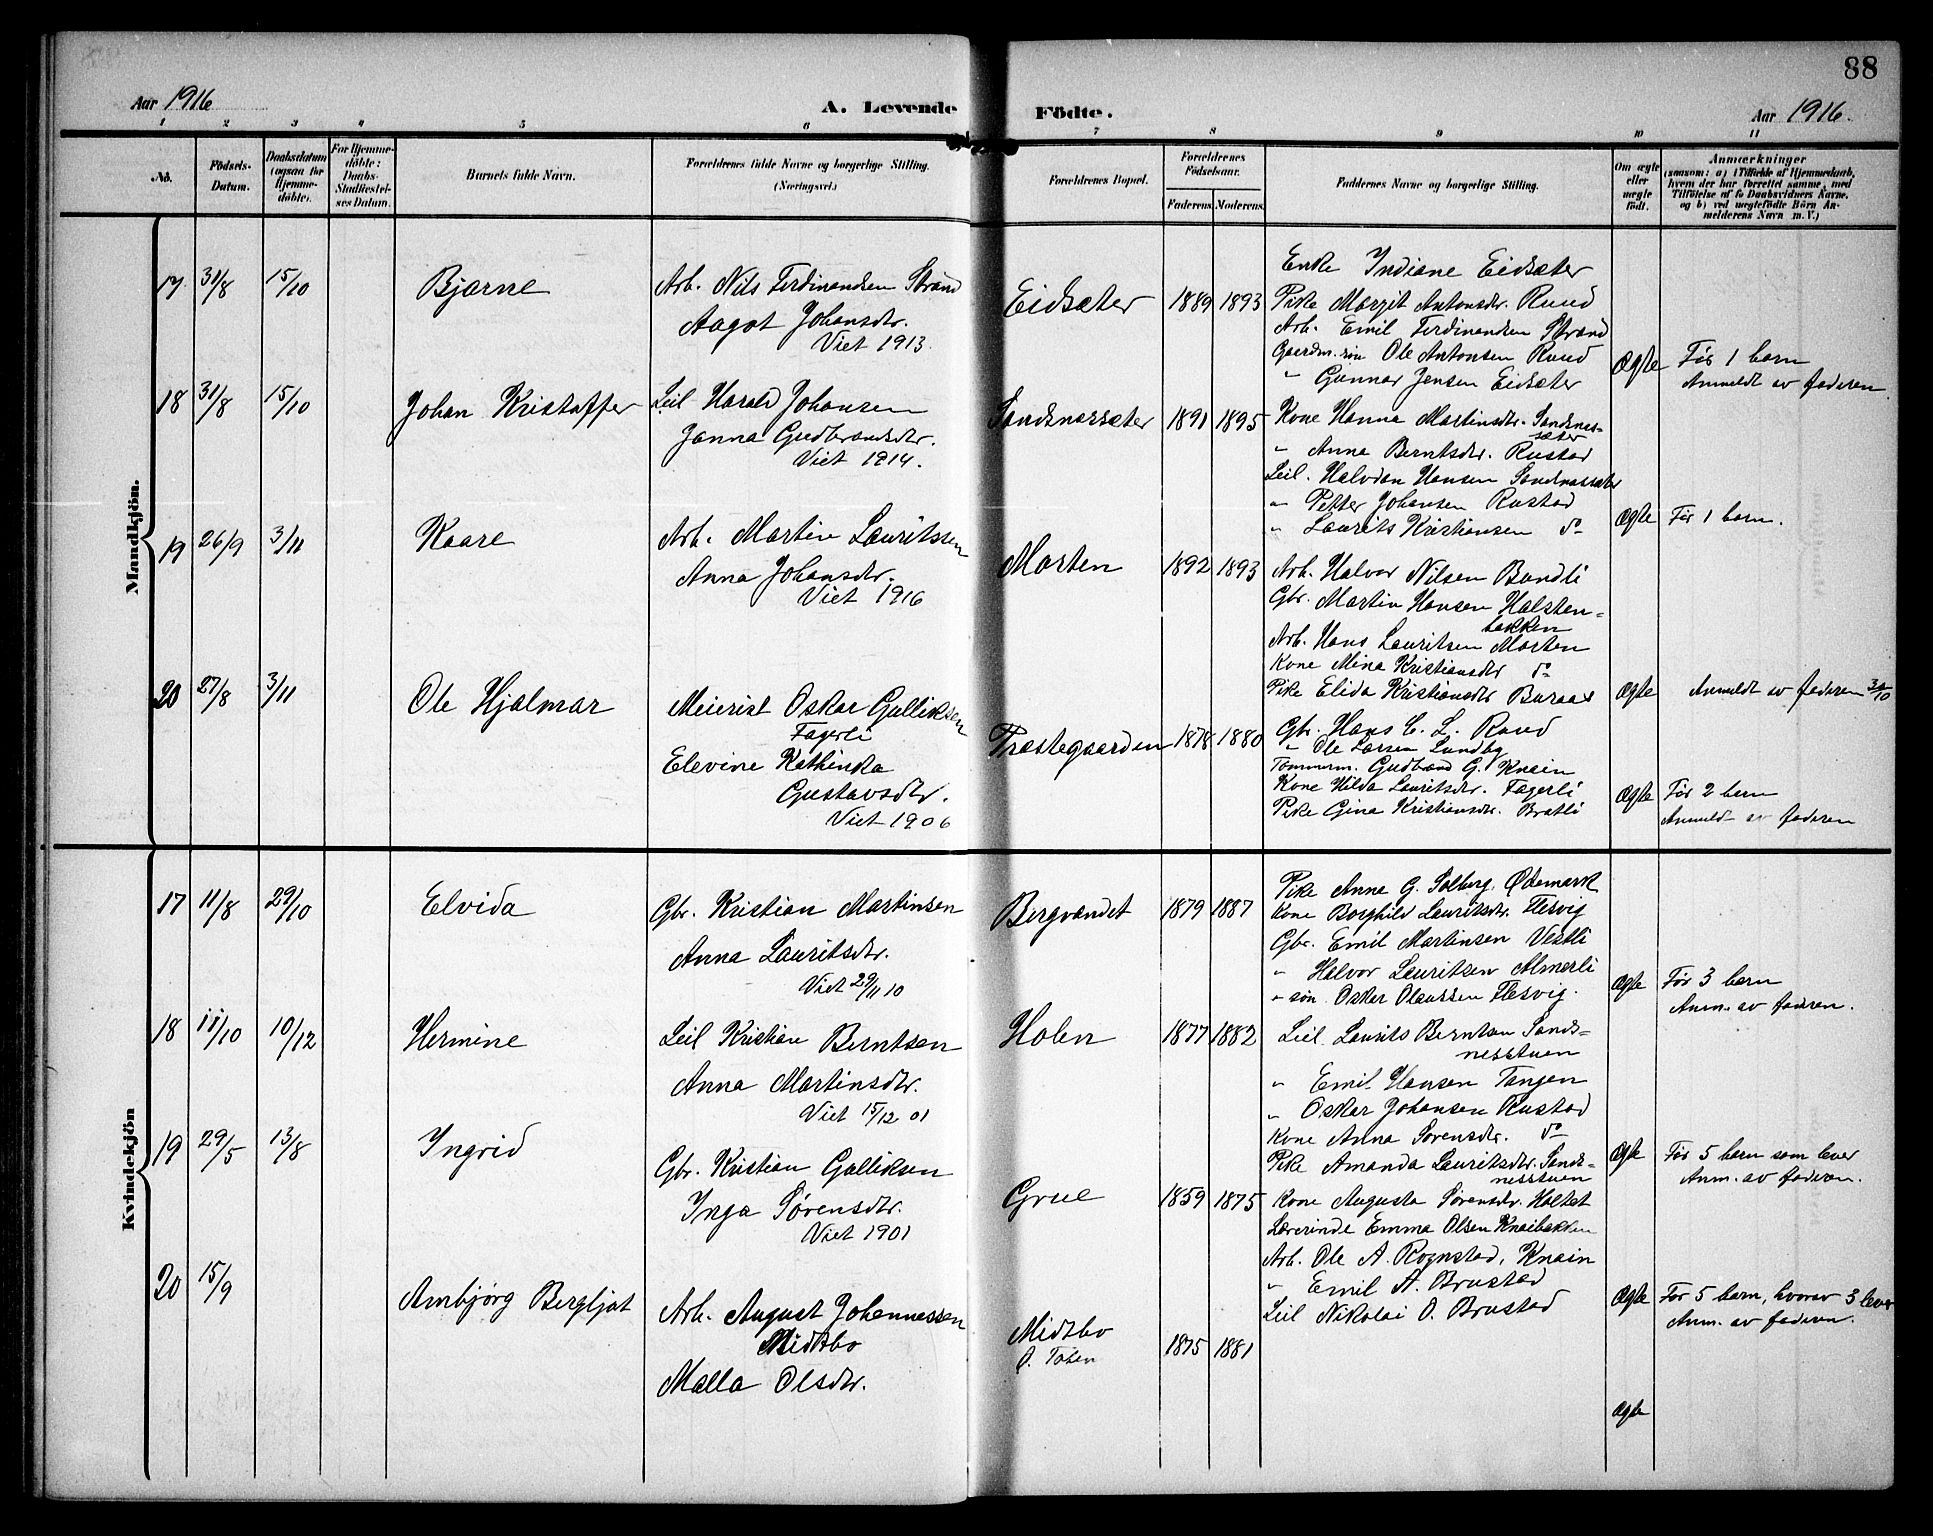 88
Aar 1916
A. Levende
Födte.
Aar 1916.
1 2 3 4 5 6 7 8 9 10 11
No.
Födsels-
Datum.
Daabsdatum
(ogsaa for
Hjemme-
döbte).
For Hjemme-
döbte:
Daabs-
Stadfæstel-
ses Datum.
Barnets fulde Navn.
Forældrenes fulde Navne og borgerlige Stilling.
(Næringsvei.)
Forældrenes Bopæl.
Forældrenes
Födselsaar.
Faderens. Moderens.
Faddernes Navne og borgerlige Stilling.
Om ægte
eller
uægte
födt.
Anmærkninger
(saasom: a) i Tilfælde af Hjemmedaab,
hvem der har forrettet samme, med
Tilföielse af to Daabsvidners Navne,
og b) ved uægtefödte Börn An-
melderens Navn m. V.)
Mandkjön.
17 31/8 15/10 Bjarne
Arb. Nils Ferdinandsen Strand
Aagot Johansdtr.
Viet 1913.
Eidsæter 1889 1893
Enke Indiane Eidsæter
Pike Margit Antonsdtr. Ruud
Arb. Emil Ferdinandsen Strand
Gaardm. søn Ole Antonsen Ruud
" Gunnar Jensen Eidsæter
Ægte
Før 1 barn
Anmeldt av faderen
18 31/8 15/10 Johan Kristoffer
Leil Harald Johansen
Janna Gudbrandsdtr.
Viet 1914.
Sandsnessæter 1891 1895
Kone Hanna Martinsdtr. Sandnes-
sæter
" Anna Berntsdtr. Rustad
Leil. Halvdan Hansen Sandnessæter
" Petter Johansen Rustad
" Laurits Kristiansen do
Ægte
Før 1 barn.
19 26/9 3/11 Kaare
Arb. Martin Lauritssen
Anna Johansdtr.
Viet 1916
Morten 1892 1893
Arb. Halvor Nilsen Bundli
Gbr. Martin Hansen Halsten-
bakken
Arb. Hans Lauritsen Morten
Kone Mina Kristiansdtr do
Pike Elida Kristiansdtr Buraas
Ægte
Anmeldt av faderen 30/10
20 27/8 3/11 Ole Hjalmar
Meierist Oskar Gulliksen
Fagerli
Elevine Kathinka
Gustavsdtr.
Viet 1906
Præstegaarden 1878 1880
Gbr. Hans C. L. Ruud
" Ole Larsen Lundby
Tømmerm. Gudbrand G. Knain
Kone Hilda Lauritsdtr. Fagerli
Pike Gina Kristiansdtr. Bratli
Ægte
Før 2 barn
Anmeldt av faderen
Kvindekjön
17 11/8 29/10 Elvida
Gbr. Kristian Martinsen
Anna Lauritsdtr.
Viet 29/11 10
Bergvandet 1879 1887
Pike Anna G. Solberg, Ødemark
Kone Borghild Lauritsdtr. Flesvig
Gbr. Emil Martinsen Vestli
" Halvor Lauritsen Almerli
" søn Oskar Olaussen Flesvig.
Ægte
Før 3 barn
Anm. av faderen.
18 11/10 10/12 Hermine
Leil Kristian Berntsen
Anna Martinsdtr.
Viet 15/12 01
Holen 1877 1882
Leil. Laurits Berntsen Sands-
nesstuen
" Emil Hansen Tangen
" Oskar Johansen Rustad
Kone Anna Sørensdtr. do
Pike Amanda Lauritsdtr. Sands-
nesstuen
Ægte
Før 5 barn som lever
Anm. av faderen.
19 29/5 13/8 Ingrid
Gbr. Kristian Gulliksen
Inga Sørensdtr.
Viet 1901
Grue 1859 1875
Kone Augusta Sørensdtr. Holtet
Lærerinde Emma Olsen Knaibakken
Arb. Ole A. Rognstad, Knain
" Emil A. Brustad
Leil Nikolai O. Brustad
Ægte
Før 5 barn, hvorav 3 lever
Anm. av faderen.
20 15/9 Arnbjørg Bergljot
Arb. August Johannessen
Midtbo
Malla Olsdtr.
Midtbo
Ø. Toten
1875 1881
Ægte